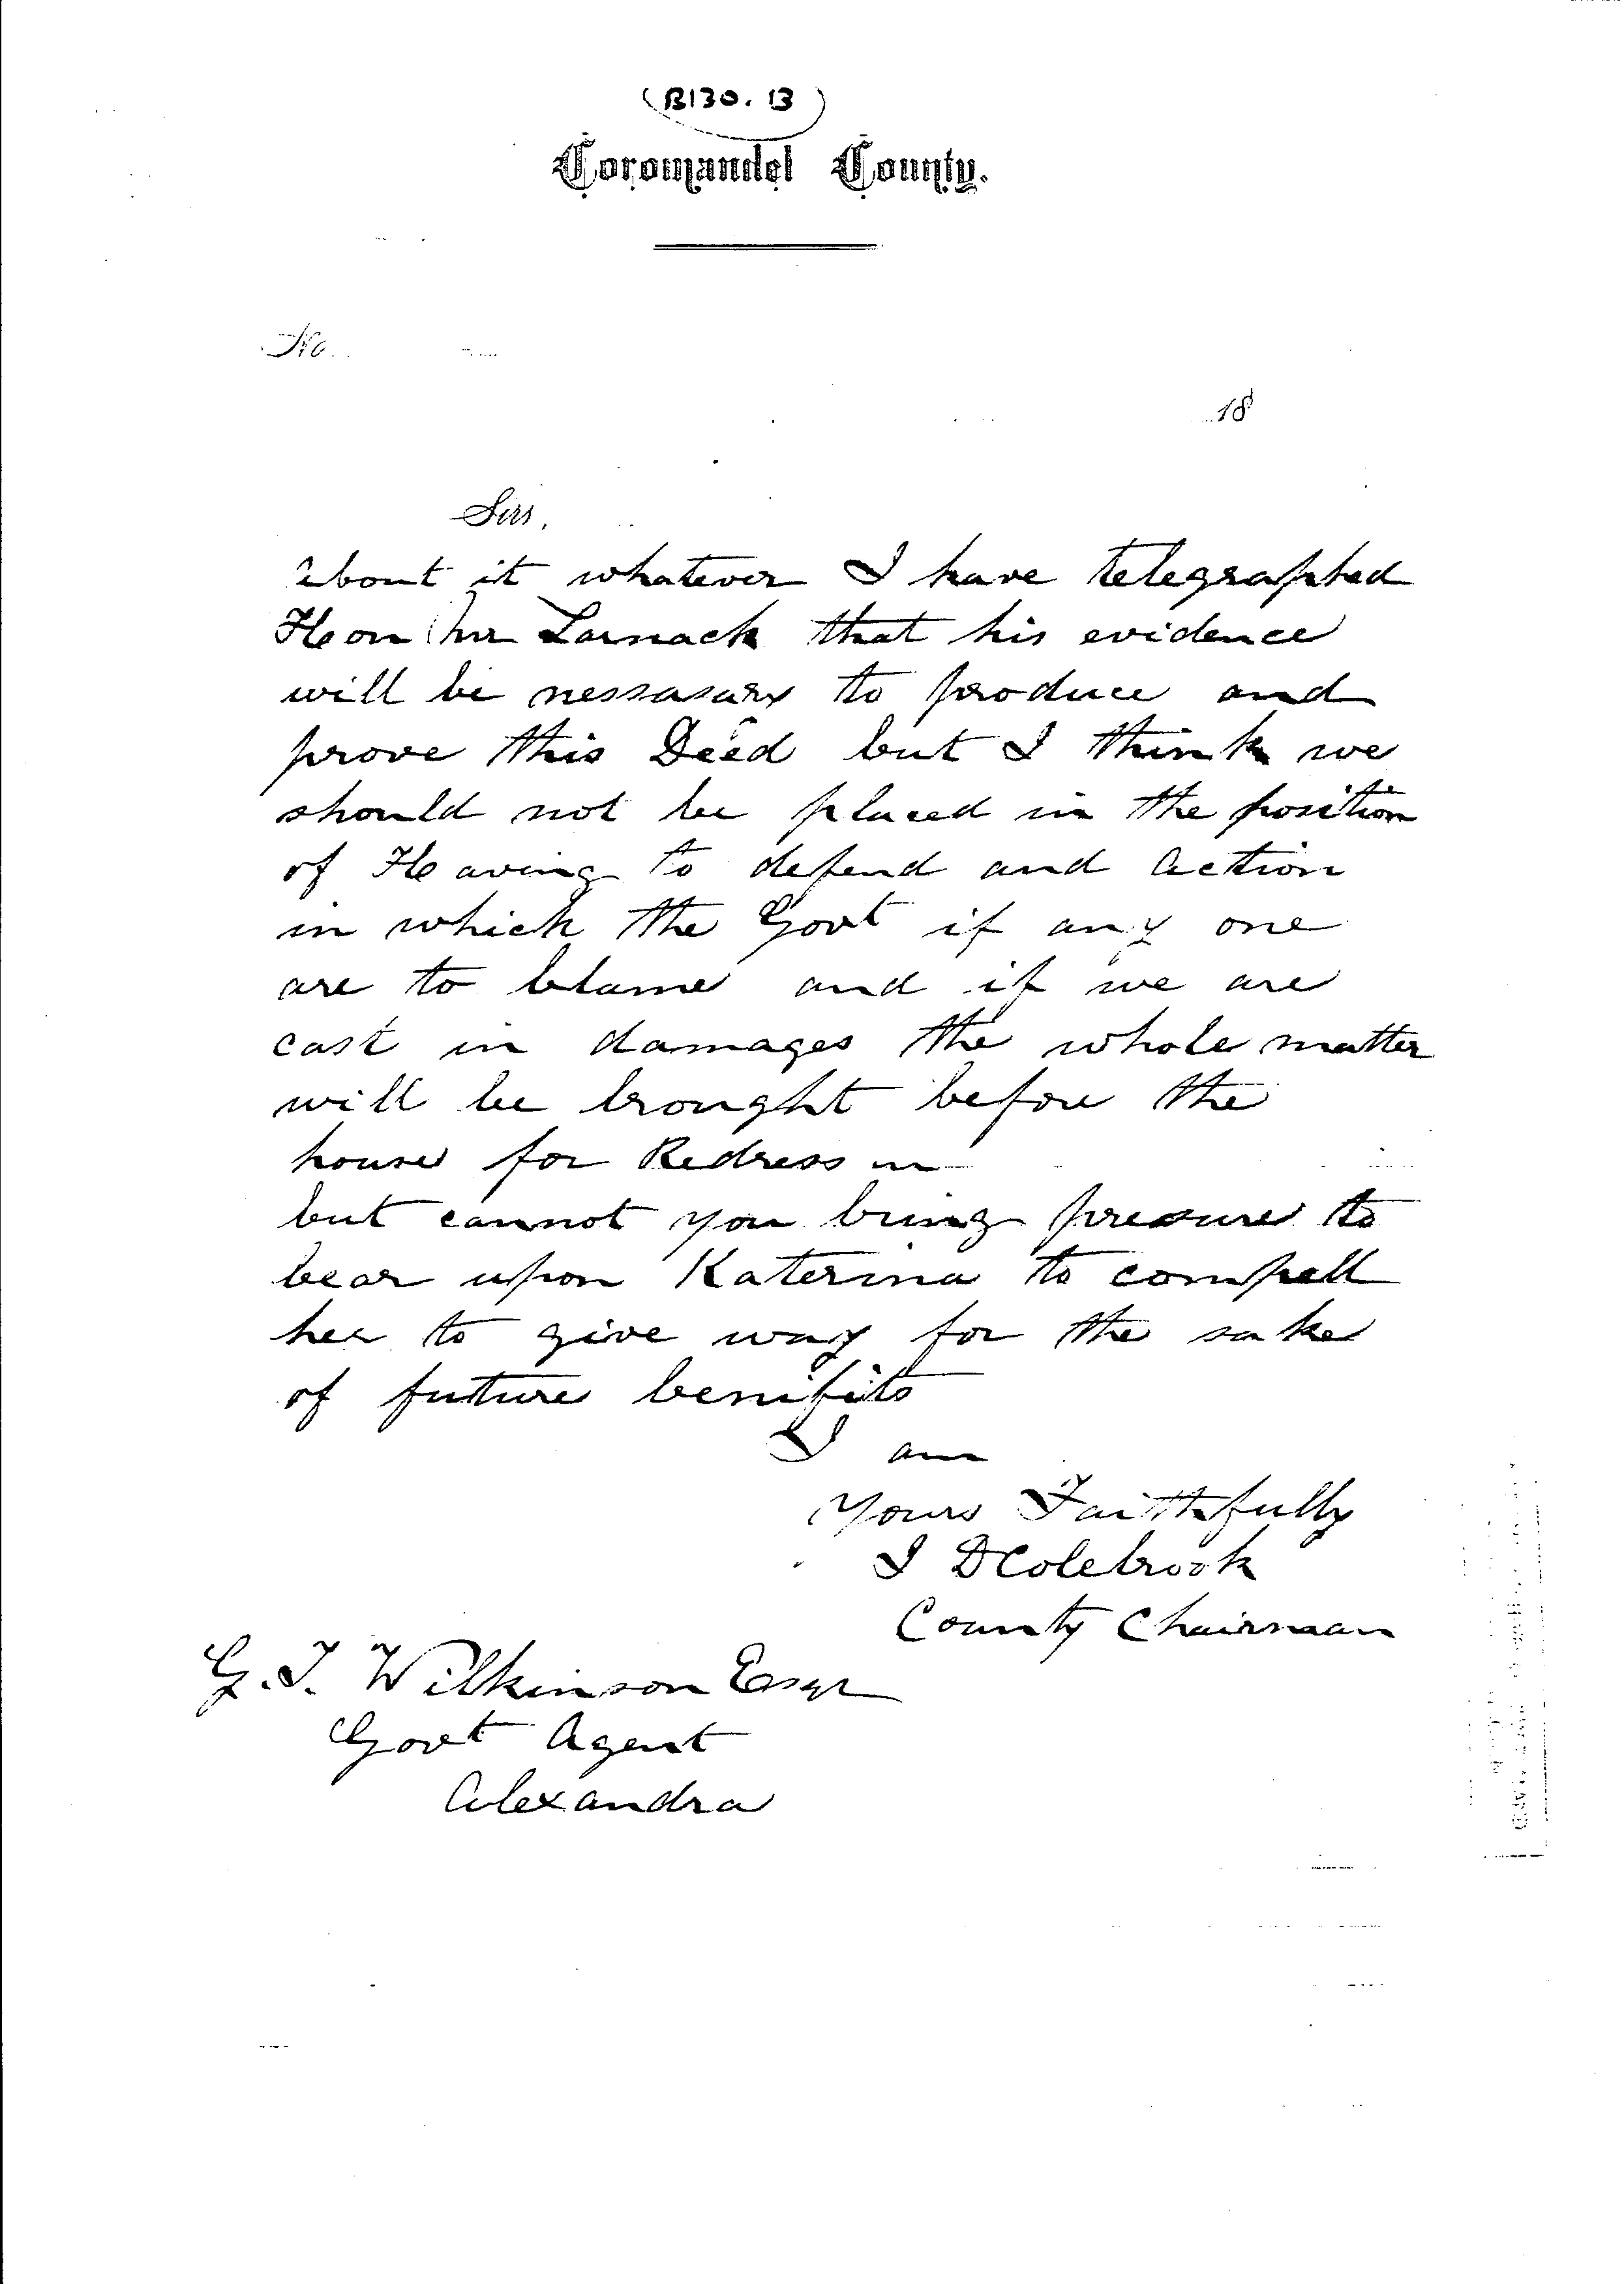 (B130.13)
Coromandel County.
No.
18
Sir,
about it whatever I have telegraphed
Hon Mr Larnack that his evidence
will be nessasary to produce and
prove this Deed but I think we
should not be placed in the position
of Having to defend and action
in which the Govt if any one
are to blame and if we are
cast in damages the whole matter
will be brought before the
house for Redress in
but cannot you bring presure to
bear upon Katerina to compell
her to give way for the sake
of future benifits
I am
Yours Faithfully
J D Colebrook
County Chairman
G. T. Wilkinson Esqr
Govt Agent
Alexandra